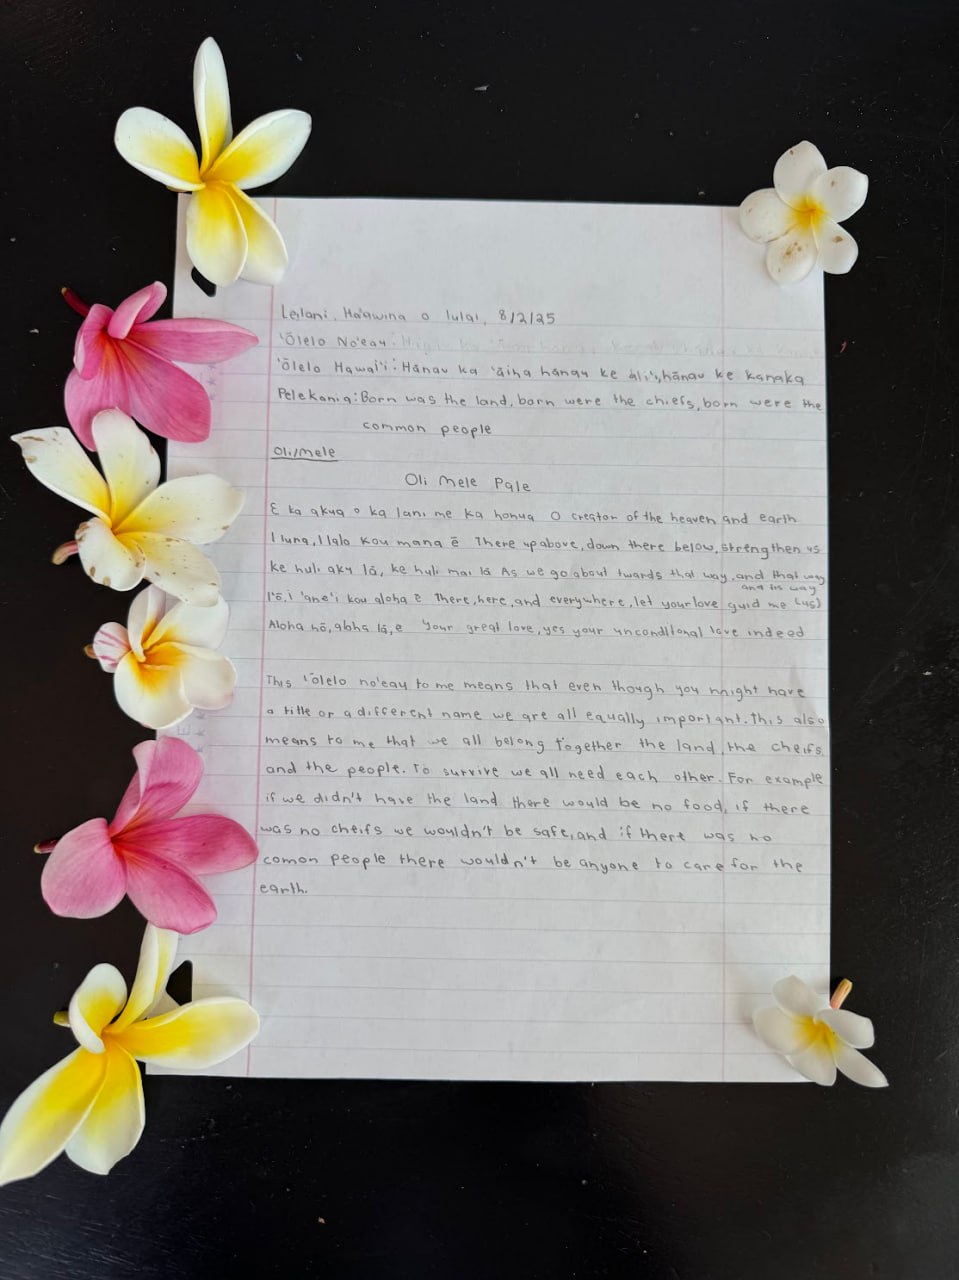 Leilani, Ha'awina o Iulai, 8/2/25
'Ōlelo No'eau:
'Ōlelo Hawai'i: Hānau ka 'āina hānau ke ali'i, hānau ke kanaka
Pelekania: Born was the land, born were the chiefs, born were the
common people
Oli/mele
Oli Mele Pale
E ka akua o ka lani me ka honua O creator of the heaven and earth
I luna, I lalo kou mana ē There up above, down there below, strengthen us
ke huli aku lā, ke huli mai lā As we go about twards that way, and that way
and tis way
I'ō, i 'ane'i kou aloha ē There, here, and everywhere, let your love guid me (us)
Aloha nō, aloha lā, e Your great love, yes your unconditional love indeed
This 'ōlelo no'eau to me means that even though you might have
a title or a different name we are all equally important. This also
means to me that we all belong together the land, the cheifs,
and the people. To survive we all need each other. For example
if we didn't have the land there would be no food, if there
was no cheifs we wouldn't be safe, and if there was no
comon people there wouldn't be anyone to care for the
earth.